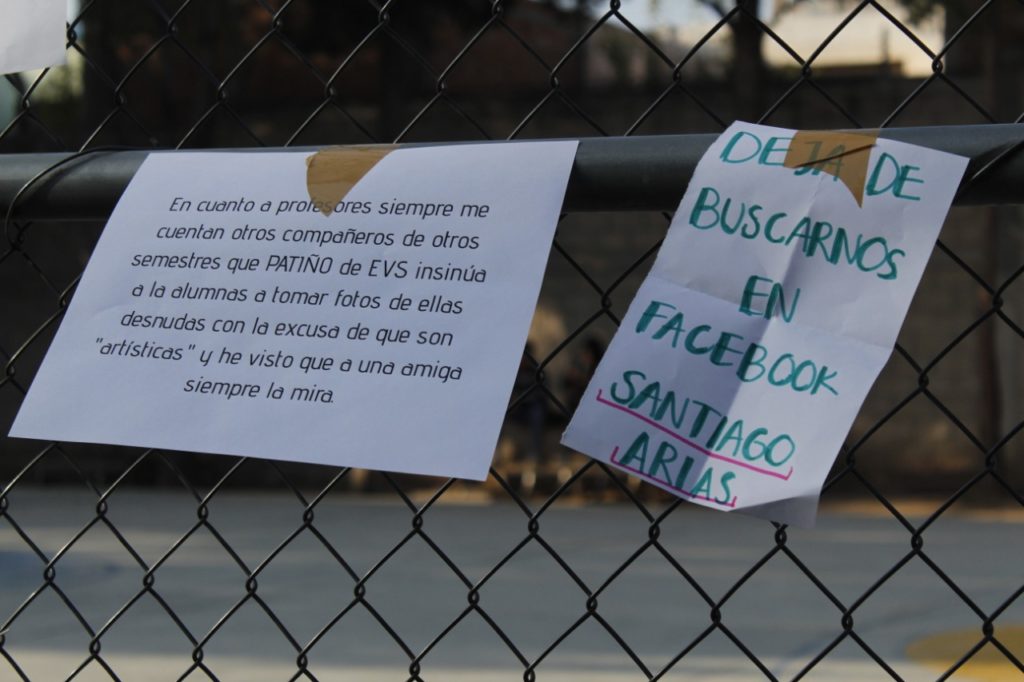 En cuanto a profesores siempre me
cuentan otros compañeros de otros
semestres que PATIÑO de EVS insinúa
a la alumnas a tomar fotos de ellas
desnudas con la excusa de que son
"artísticas" y he visto que a una amiga
siempre la mira.
DEJA DE
BUSCARNOS
EN
FACEBOOK
SANTIAGO
ARIAS